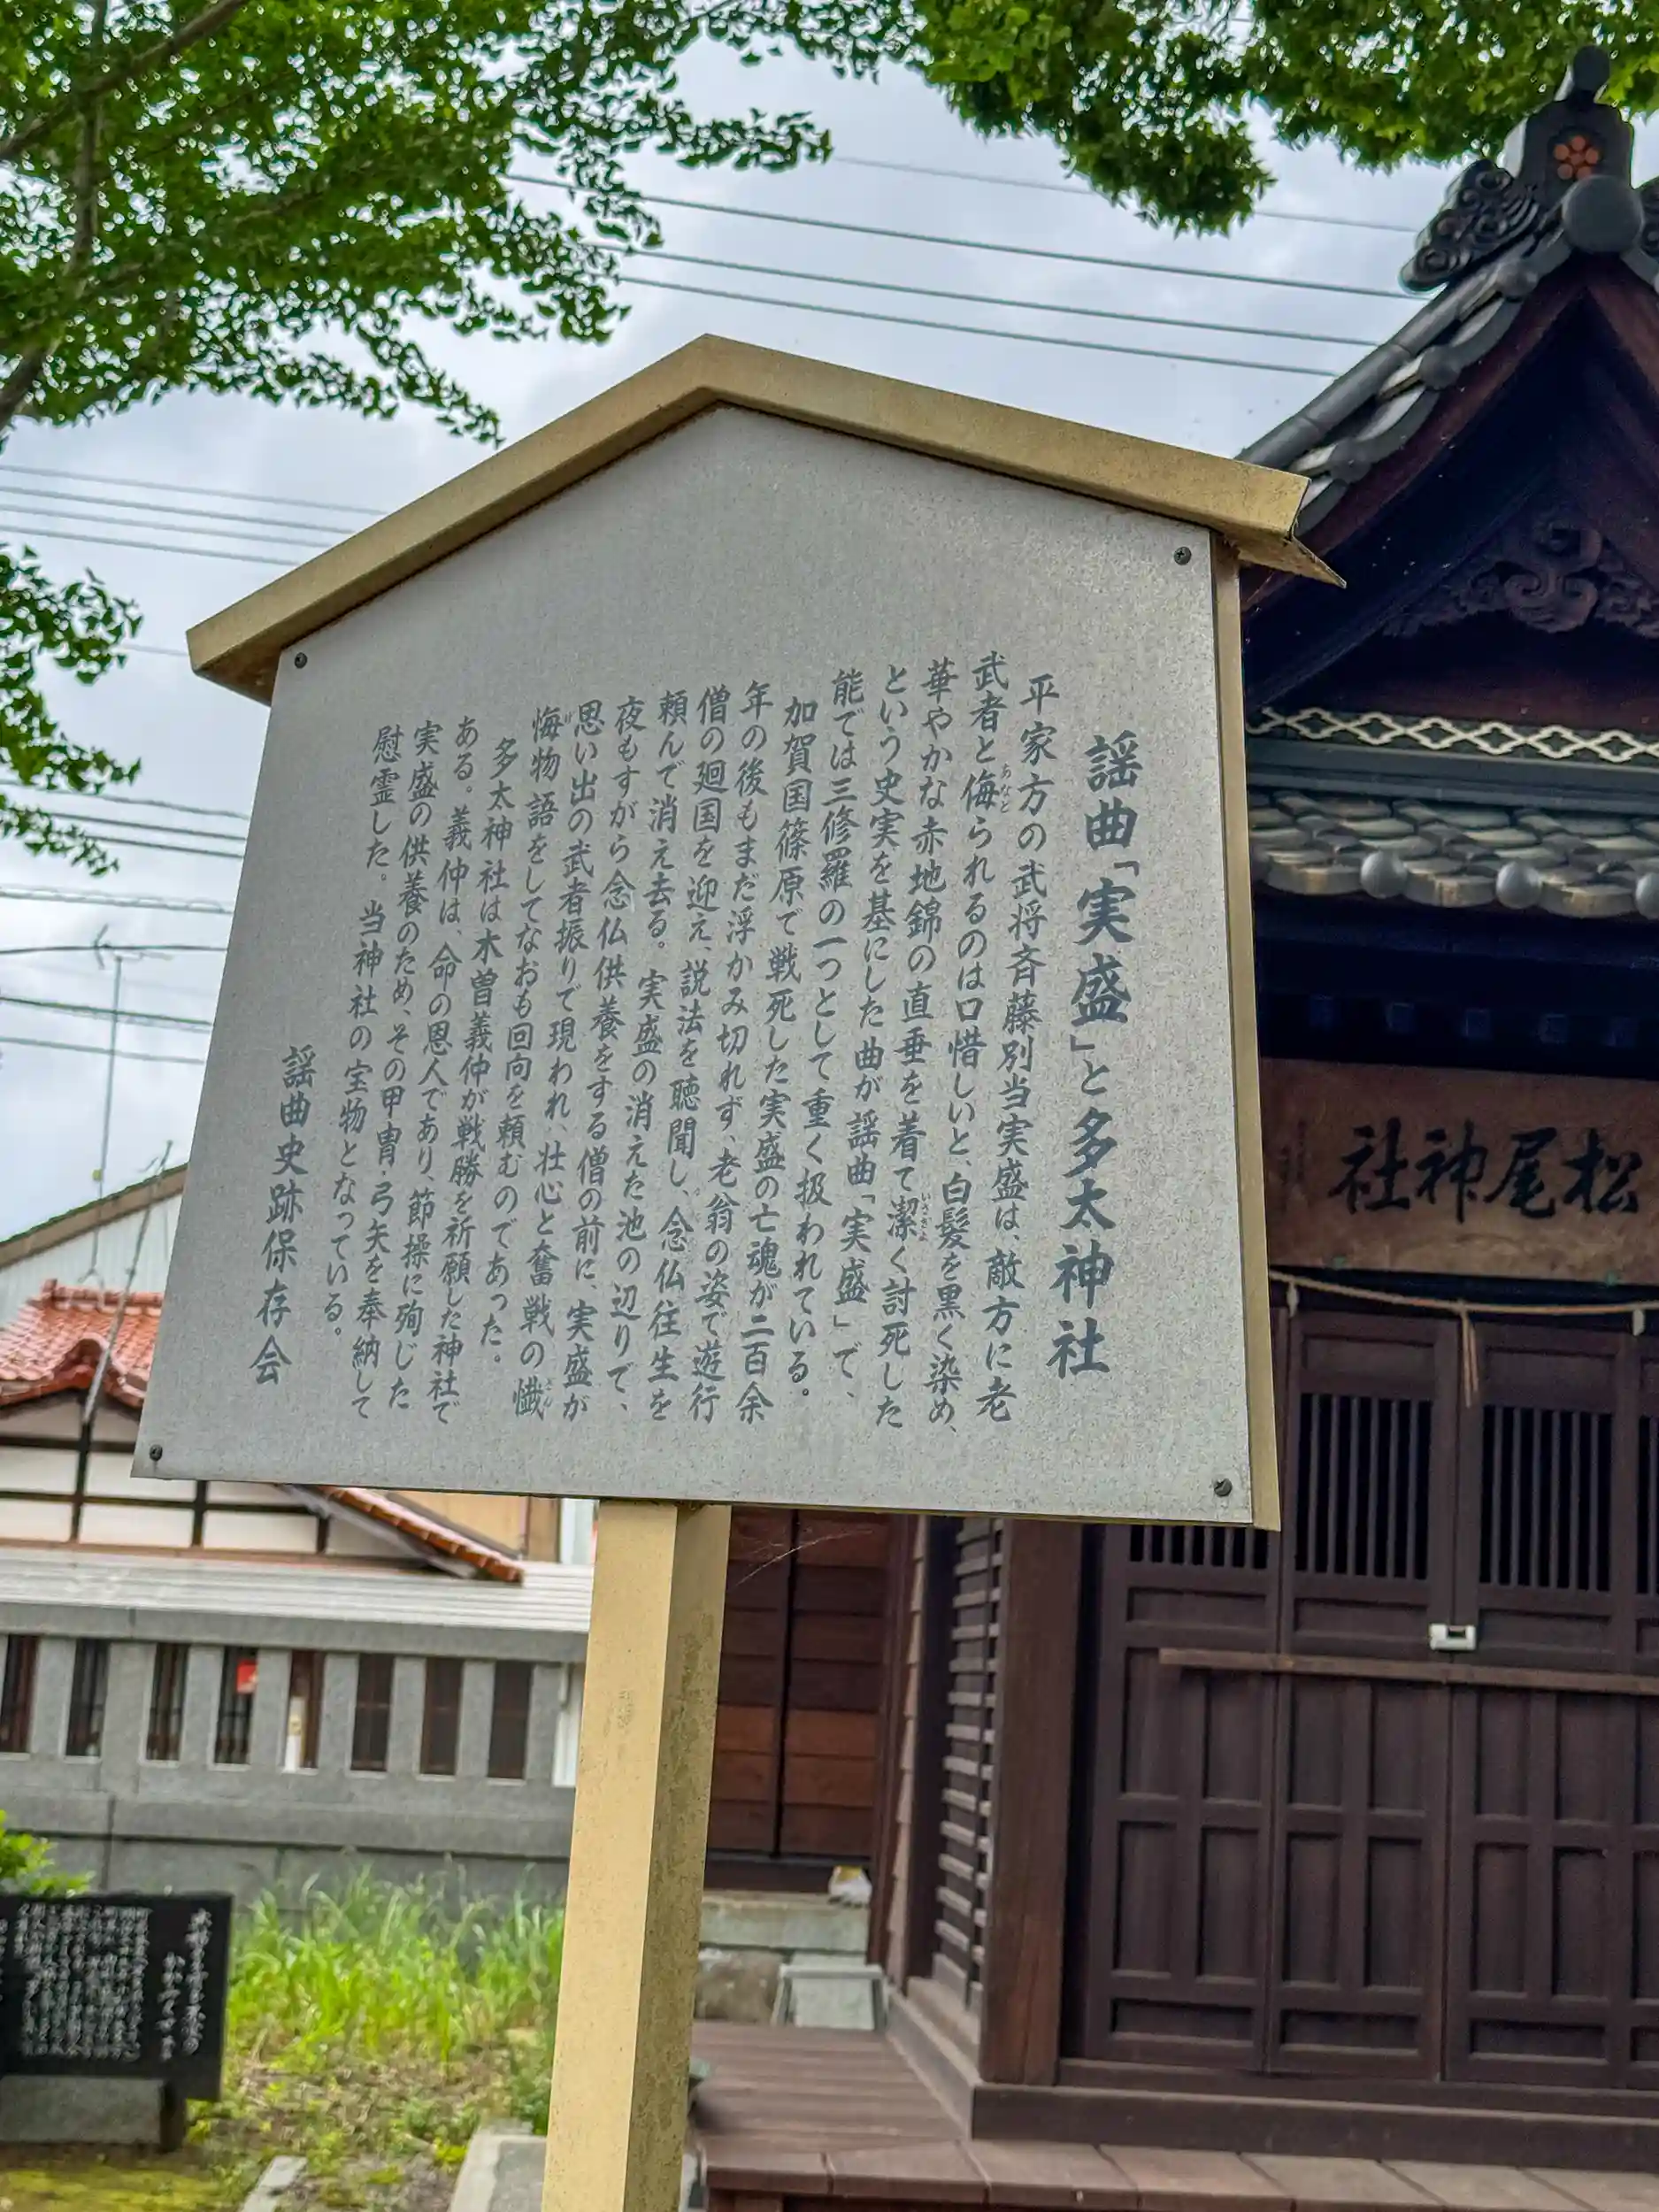 謡曲「実盛」と多太神社
平家方の武将斉藤別当実盛は、敵方に老
武者と侮られるのは口惜しいと、白髪を黒く染め、
あなど
華やかな赤地錦の直垂を着て潔く討死した
いさぎよ
という史実を基にした曲が謡曲「実盛」で、
能では三修羅の一つとして重く扱われている。
加賀国篠原で戦死した実盛の亡魂が二百余
年の後もまだ浮かみ切れず、老翁の姿で遊行
僧の廻国を迎え、説法を聴聞し、念仏往生を
頼んで消え去る。実盛の消えた池の辺りで、
夜もすがら念仏供養をする僧の前に、実盛が
思い出の武者振りで現われ、壮心と奮戦の懺
さん
悔物語をしてなおも回向を頼むのであった。
げ
多太神社は木曽義仲が戦勝を祈願した神社で
ある。義仲は、命の恩人であり、節操に殉じた
実盛の供養のため、その甲冑・弓矢を奉納して
慰霊した。当神社の宝物となっている。
謡曲史跡保存会
松尾神社